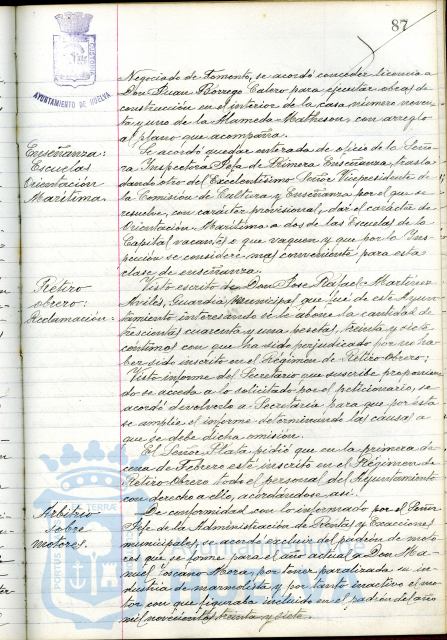 87
AYUNTAMIENTO DE HUELVA
Negociado de Fomento, se acordó conceder licencia a
Don Juan Borrego Calero para ejecutar obras de
construcción en el interior de la casa número noven-
ta y uno de la Alameda Matheson, con arreglo
al plano que acompaña.
Enseñanza:
Escuelas
Orientación
Marítima.
Se acordó quedar enterada de oficio de la Seño-
ra Inspectora Jefe de Primera Enseñanza, trasla-
dando otro del Excelentísimo Señor Vicepresidente de
la Comisión de Cultura y Enseñanza por el que se
resuelve, con carácter provisional, dar el carácter de
Orientación Marítima a dos de las Escuelas de la
Capital vacantes o que vaquen y que por la Ins-
pección se considere más conveniente para esta
clase de enseñanza.
Retiro
obrero:
Reclamación:
Visto escrito de Don José Rafael Martínez
Aviles, Guardia municipal que fué de este Ayun-
tamiento interesando se le abone la cantidad de
trescientas cuarenta y una pesetas, treinta y siete
céntimos con que ha sido perjudicado por no ha-
ber sido inscrito en el Régimen de Retiro Obrero;
Visto informe del Secretario que suscribe proponien-
do se acceda a lo solicitado por el peticionario, se
acordó devolverlo a Secretaría para que por ésta
se amplíe el informe determinando las causas a
que se debe dicha omisión.
El Señor Plata pidió que en la primera de-
cena de Febrero esté inscrito en el Régimen de
Retiro Obrero todo el personal del Ayuntamiento
con derecho a ello, acordándose así.
Arbitrio
sobre
motores.
De conformidad con lo informado por el Señor
Jefe de la Administración de Rentas y Exacciones
municipales, se acordó excluir del padrón de moto-
res que se forme para el año actual a Don Ma-
nuel Toscano Mora, por tener paralizada su in-
dustria de marmolista y por tanto inactivo el mo-
tor con que figuraba incluido en el padrón del año
mil novecientos treinta y siete.